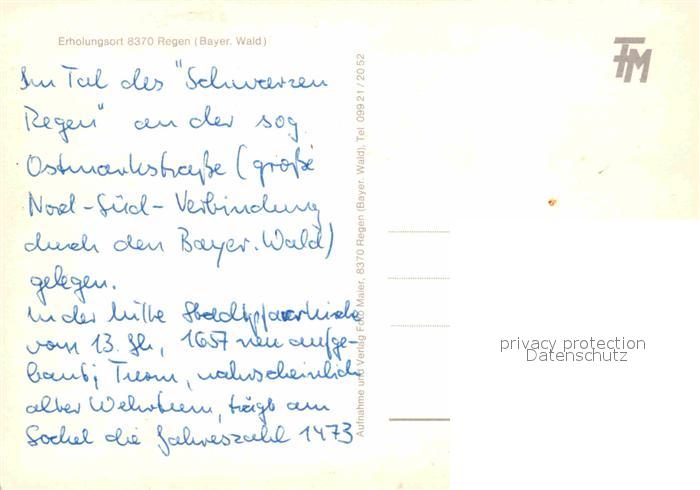 Erholungsort 8370 Regen (Bayer. Wald)
FM
Im Tal des "Schwarzen
Regen" an der sog
Ostmarkstraße (große
Nord-Süd-Verbindung
durch den Bayer. Wald)
gelegen.
In der Mitte Stadtpfarrkirche
vom 13. Jh, 1657 neu aufge-
baut; Turm, wahrscheinlich
alter Wehrturm, trägt am
Sockel die Jahreszahl 1473
Aufnahme und Verlag Foto Maier, 8370 Regen (Bayer. Wald), Tel. 099 21 / 20 52
privacy protection
Datenschutz